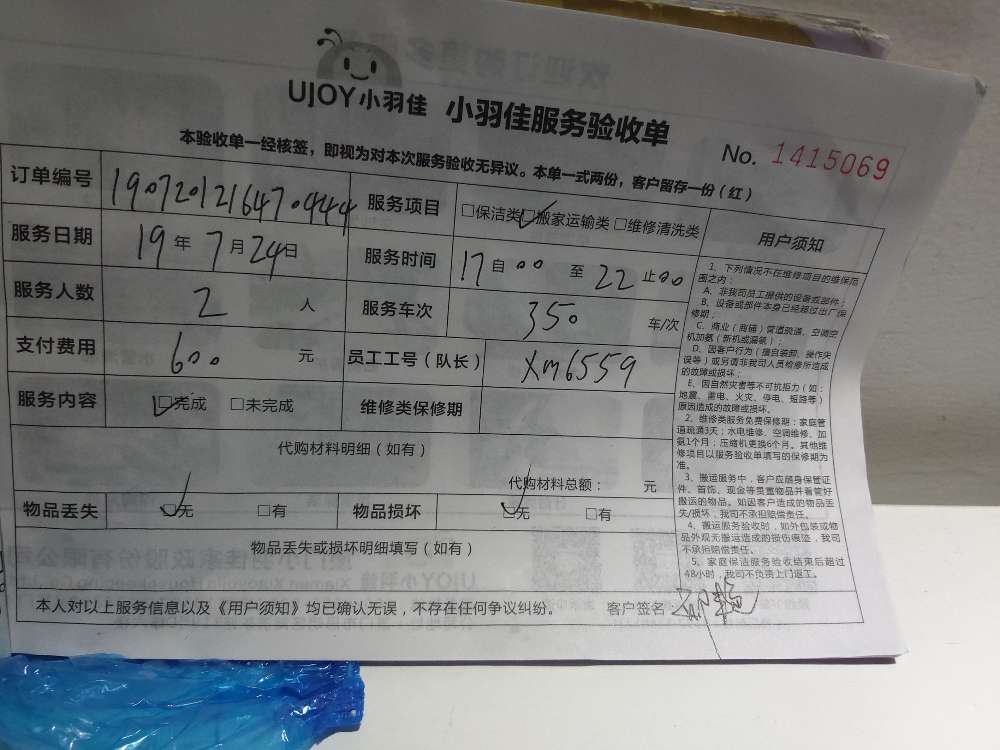 UJOY小羽佳 小羽佳服务验收单
No. 1415069
本验收单一经核签，即视为对本次服务验收无异议。本单一式两份，客户留存一份（红）
订单编号 1907201216470444 服务项目 □保洁类 ☑搬家运输类 □维修清洗类
服务日期 19年7月24日 服务时间 17自00至22止00
服务人数 2人 服务车次 350 车/次
支付费用 600元 员工工号（队长） Xm6559
服务内容 ☑完成 □未完成 维修类保修期
代购材料明细（如有）
代购材料总额： 元
物品丢失 ☑无 □有 物品损坏 ☑无 □有
物品丢失或损坏明细填写（如有）
本人对以上服务信息以及《用户须知》均已确认无误，不存在任何争议纠纷。 客户签名
用户须知
1、下列情况不在维修项目的维保范
围之内：
A、非我司员工提供的设备或部件；
B、设备或部件本身已经超过出厂保
修期；
C、商业（商铺）管道疏通、空调空
机加氨（新机或漏氨）；
D、因客户行为（擅自装卸、操作失
误等）或另请非我司人员检修所造成
的故障或损坏；
E、因自然灾害等不可抗拒力（如：
地震、雷电、火灾、停电、短路等）
原因造成的故障或损坏。
2、维修类服务免费保修期：家庭管
道疏通3天；水电维修、空调维修、加
氨1个月；压缩机更换6个月。其他维
修项目以服务验收单填写的保修期为
准。
3、搬运服务中，客户应随身保管证
件、首饰、现金等贵重物品并看管好
搬运的物品。如因客户造成的物品丢
失/损坏，我司不承担赔偿责任。
4、搬运服务验收时，如外包装或物
品外观无搬运造成的损伤痕迹，我司
不承担赔偿责任。
5、家庭保洁服务验收结束后超过
48小时，我司不负责上门返工。